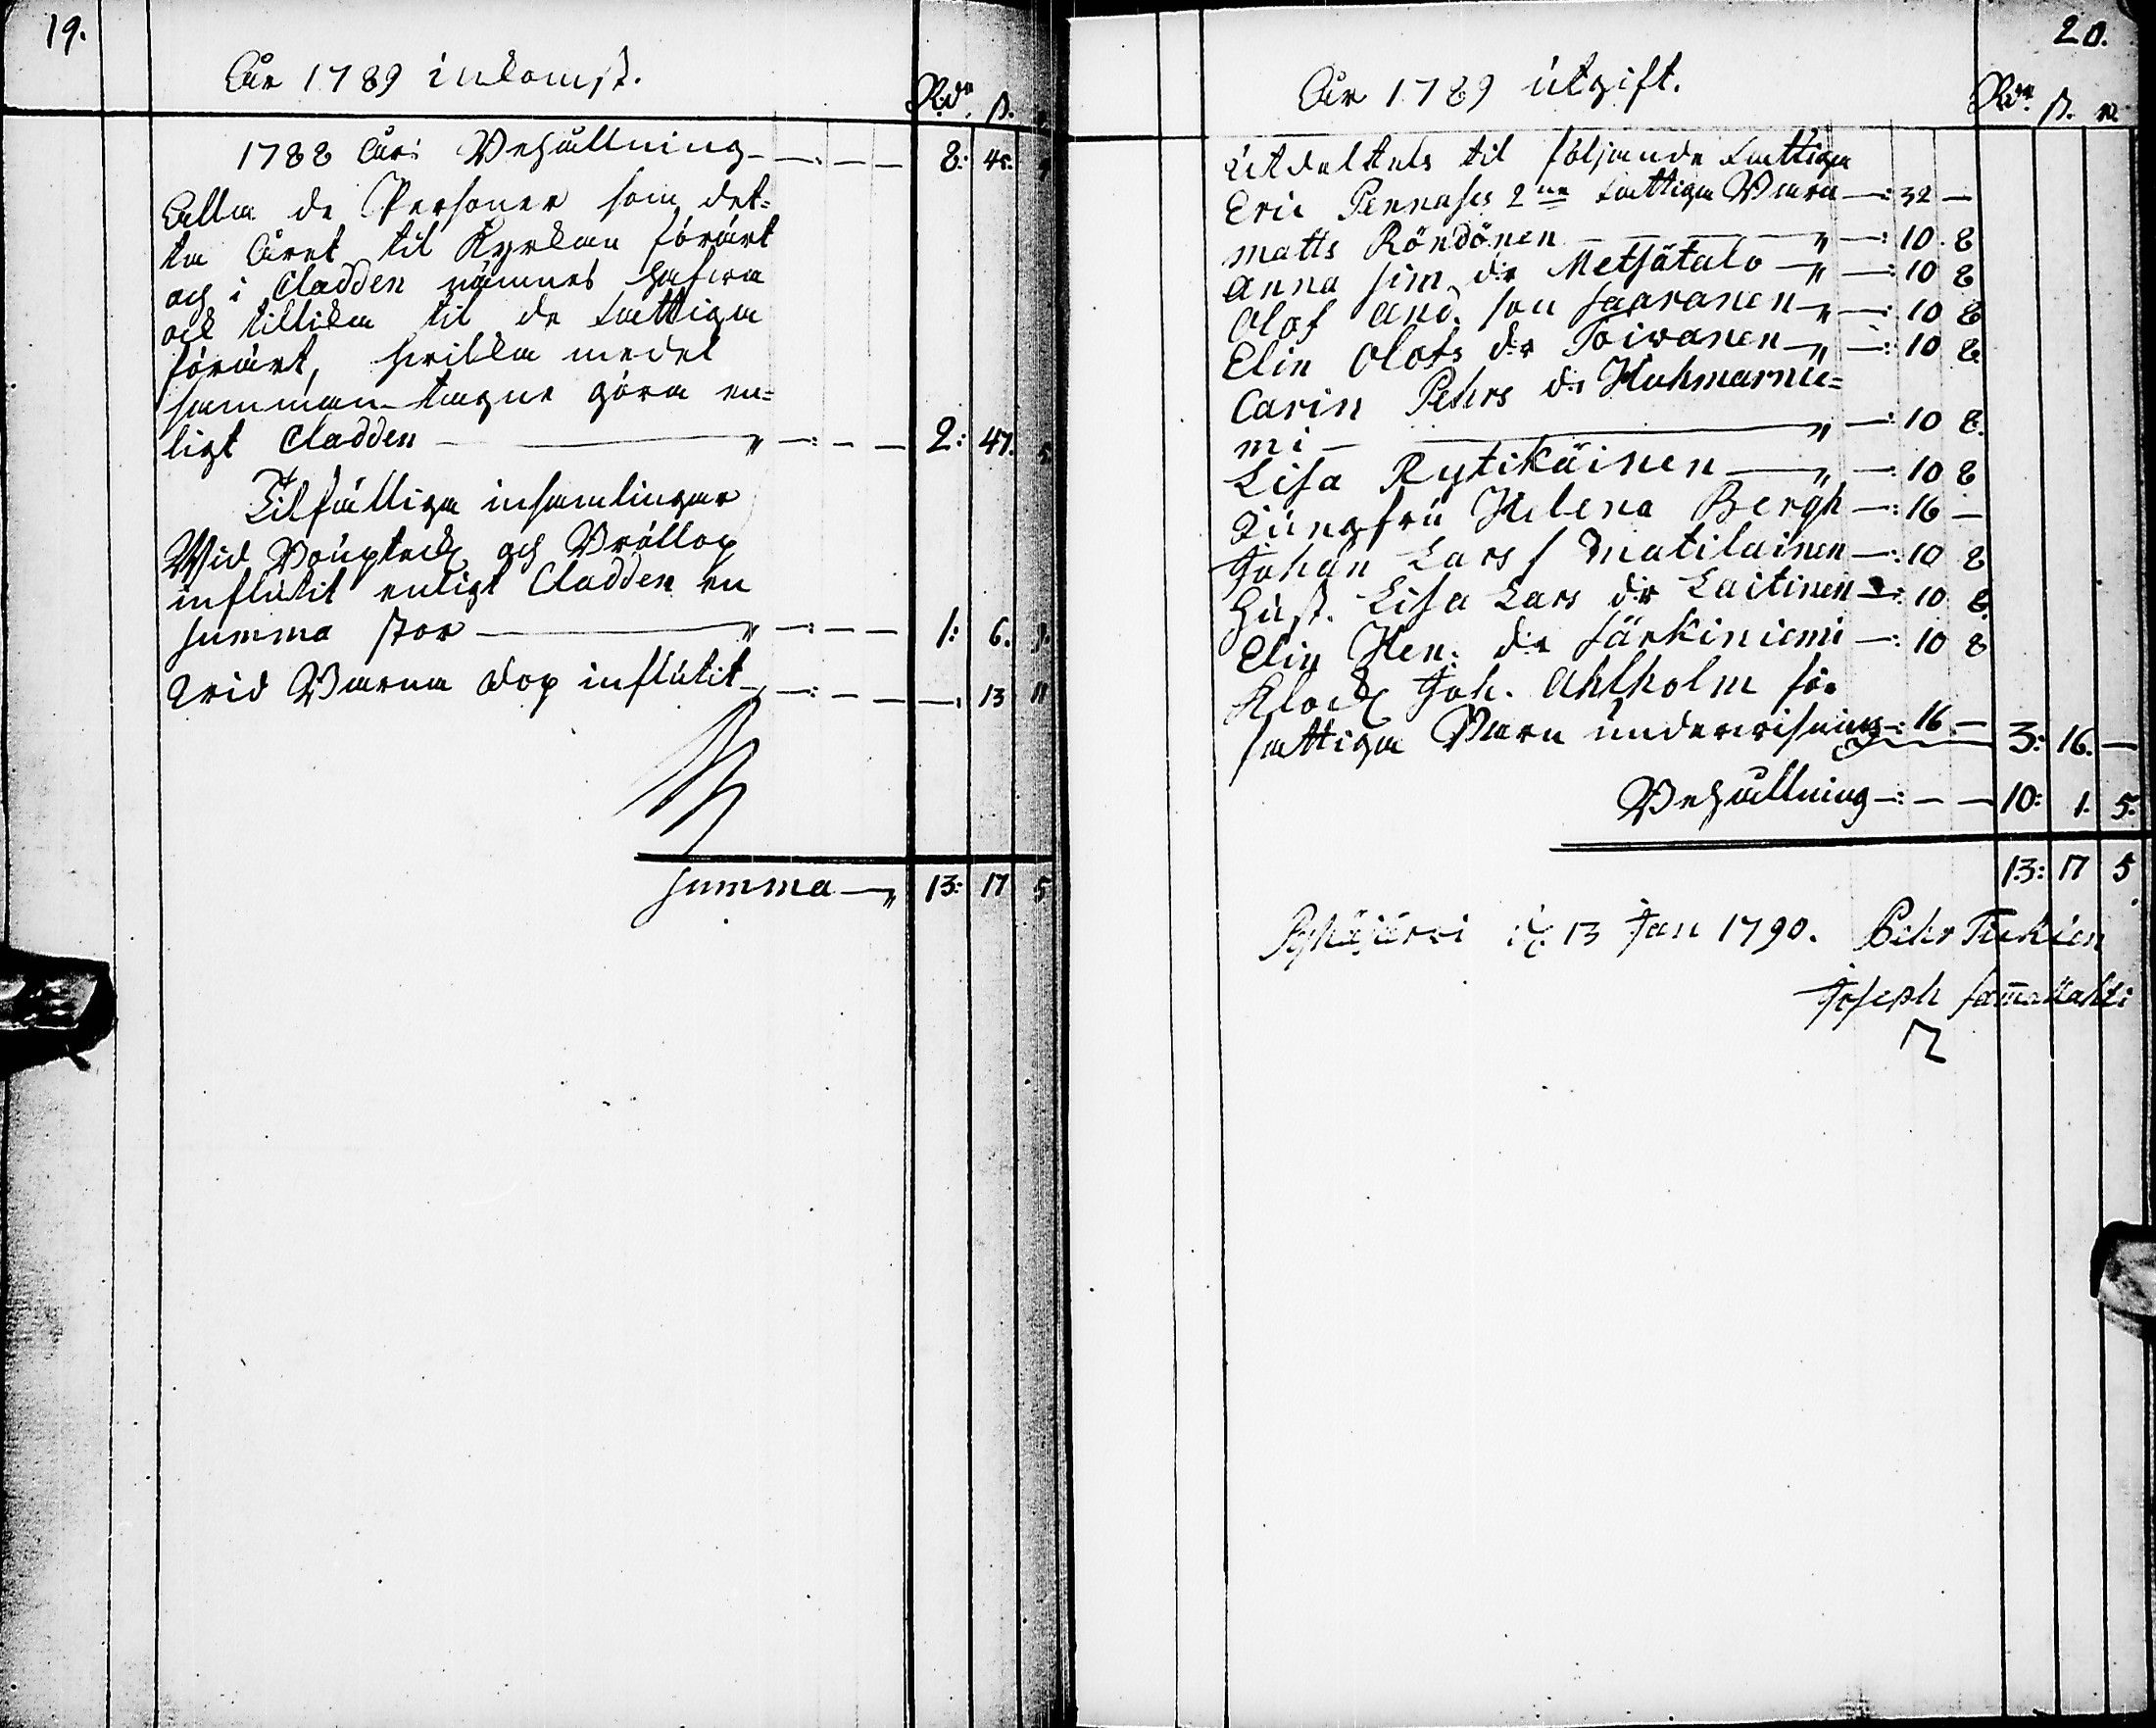 19.
År 1789 inkomst.
Rdr ß. r.
1788 års Behållning 8: 45.
Alla de Personer som det=
ta Året til Kyrkan förärt
och i Cladden nämnes hafwa
ock tillika til de fattiga
förärt, hvilka medel
samman tagne göra en=
ligt Cladden 2: 47. 5
Tilfälliga insamlingar
Wid Bouptek och Bröllop
influtit enligt Cladden en
summa stor 1: 6. 9.
Wid Barna dop influtit 13 11
Summa 13: 17 5
20.
År 1789 utgift.
Rdr ß. r.
Utdeltels til följande fattiga
Eric Pennases 2ne fattiga Barn 32 —
Matts Röndönen 10. 8
Anna Sim. dr Metsätalo 10 8
Olof And. son Saaranen 10 8
Elin Olofs dr Toivanen 10 8
Carin Pehrs dr Huhmarnie=
mi 10 8.
Lisa Rytikäinen 10 8
Jungfru Helena Bergh 16 —
Johan Lars s Matilainen 10 8
Hust. Lisa Lars dr Laitinen 10 8
Elin Hen. dr Särkiniemi 10 8
Klock Joh. Ahlholm för
fattiga Barn underwisning 16 — 3: 16. —
Behållning 10: 1. 5.
13: 17 5
Pyhäjärvi d. 13 Jan 1790. Pehr
Joseph